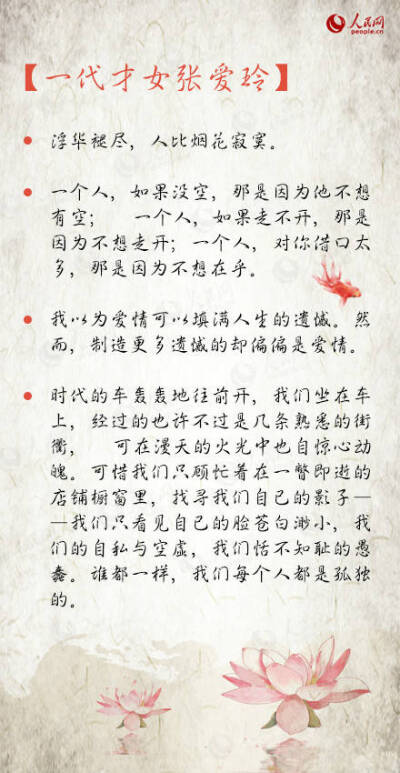 人民网
people.cn
【一代才女张爱玲】
浮华褪尽，人比烟花寂寞。
一个人，如果没空，那是因为他不想
有空； 一个人，如果走不开，那是
因为不想走开；一个人，对你借口太
多，那是因为不想在乎。
我以为爱情可以填满人生的遗憾。然
而，制造更多遗憾的却偏偏是爱情。
时代的车轰轰地往前开，我们坐在车
上，经过的也许不过是几条熟悉的街
衢， 可在漫天的火光中也自惊心动
魄。可惜我们只顾忙着在一瞥即逝的
店铺橱窗里，找寻我们自己的影子—
—我们只看见自己的脸苍白渺小，我
们的自私与空虚，我们恬不知耻的愚
蠢。谁都一样，我们每个人都是孤独
的。